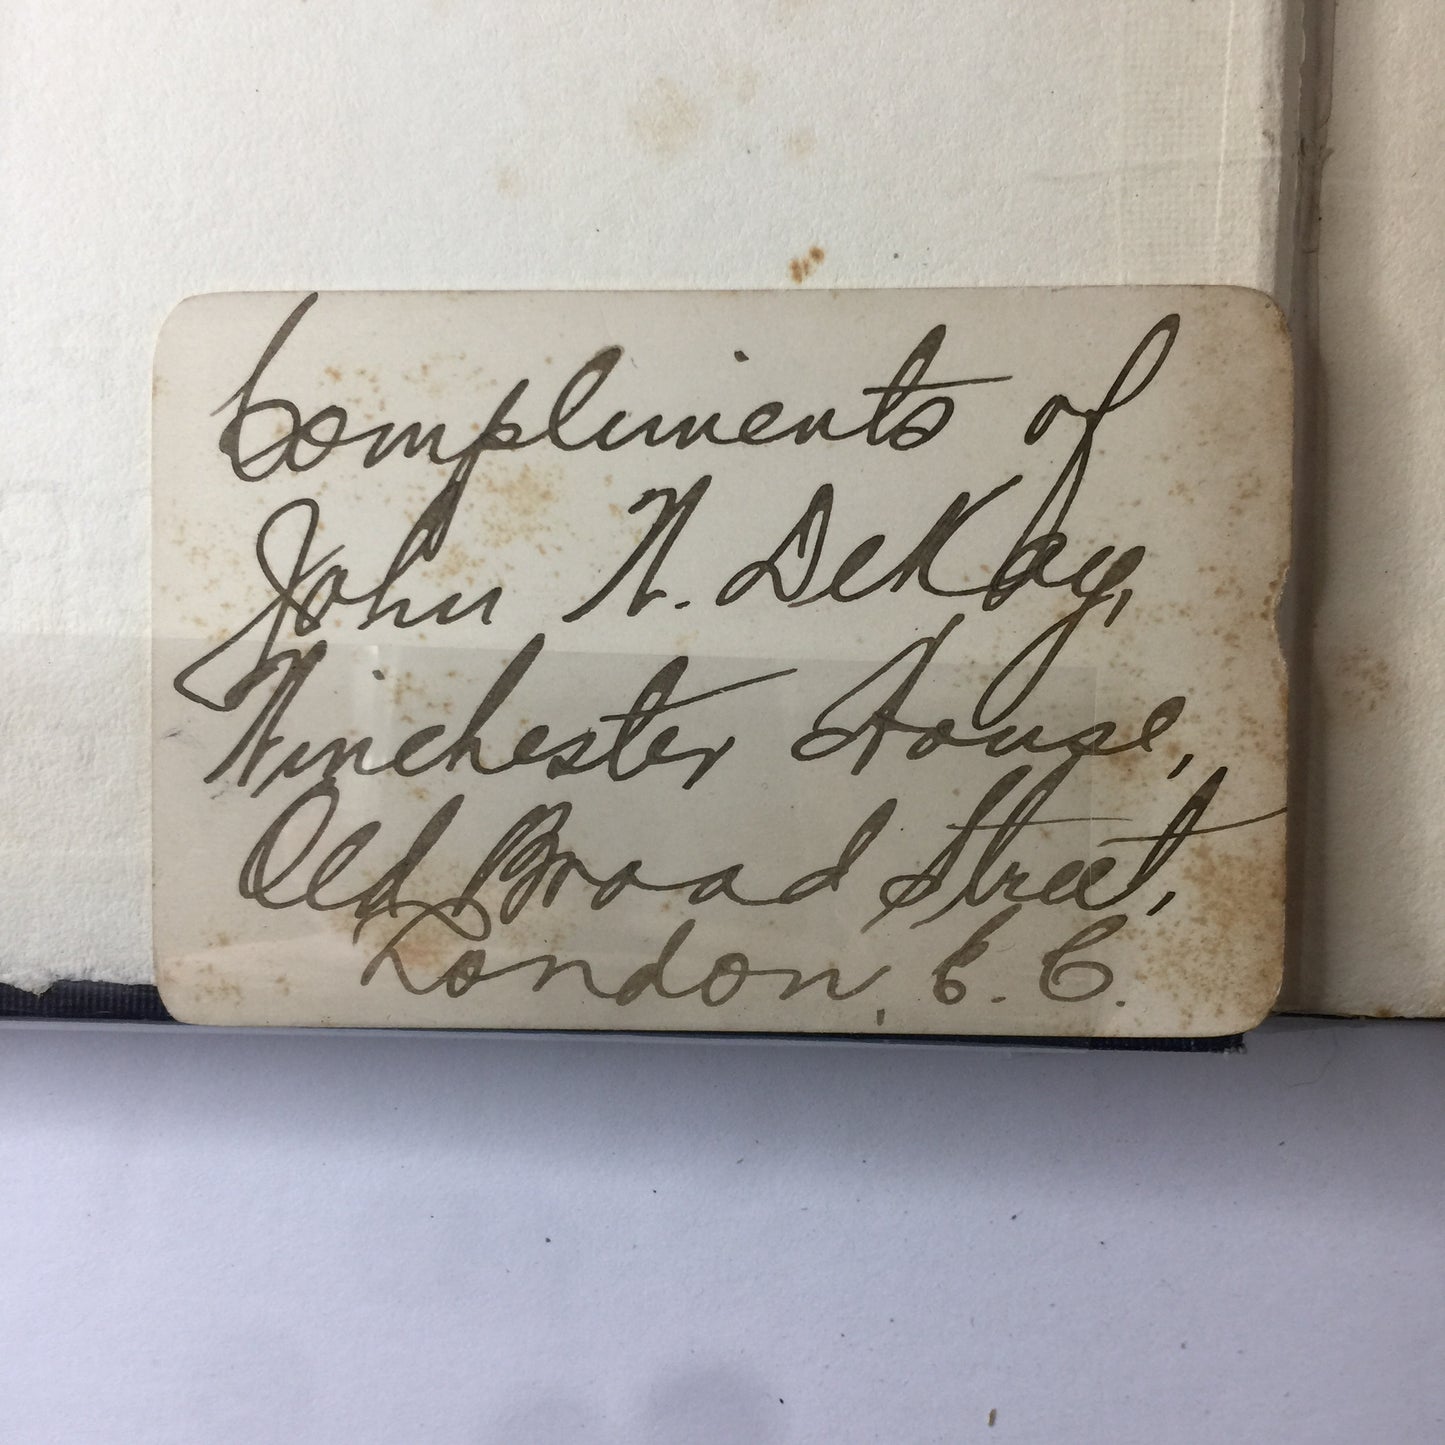 Compliments of
John W. DeKay,
Winchester House,
Old Broad Street,
London, E. C.